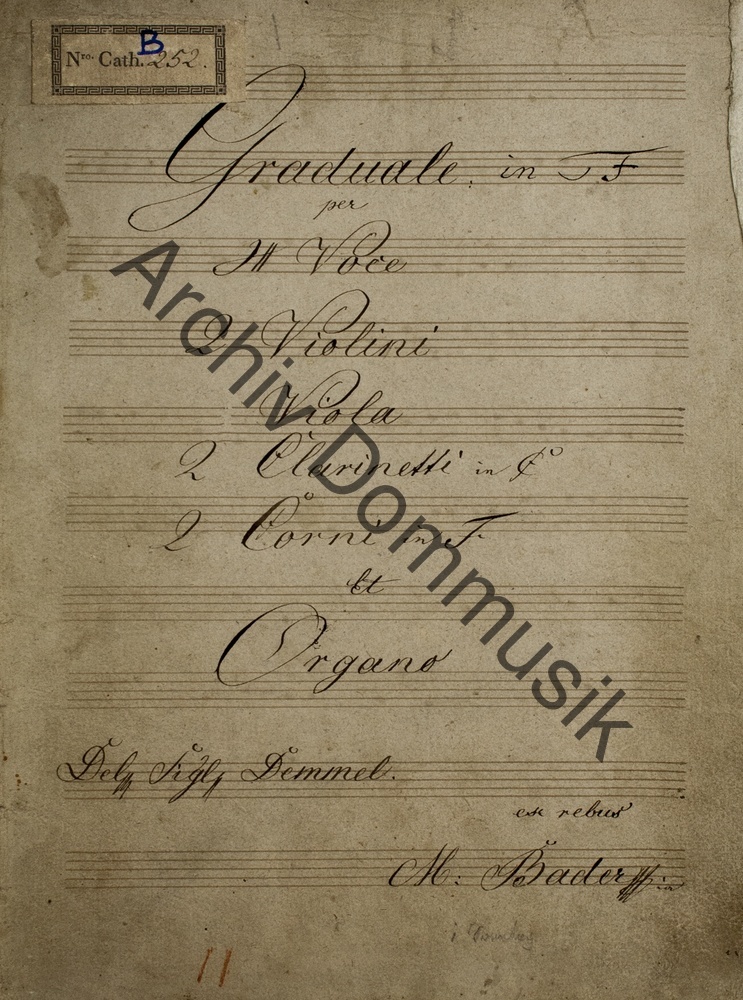 B
Nro. Cath. 252.
Graduale in F
per
4 Voce
2 Violini
Viola
2 Clarinetti in C
2 Corni in F
Et
Organo
Del Sigl Demmel.
ex rebus
M: Bader
11
Archiv Dommusik